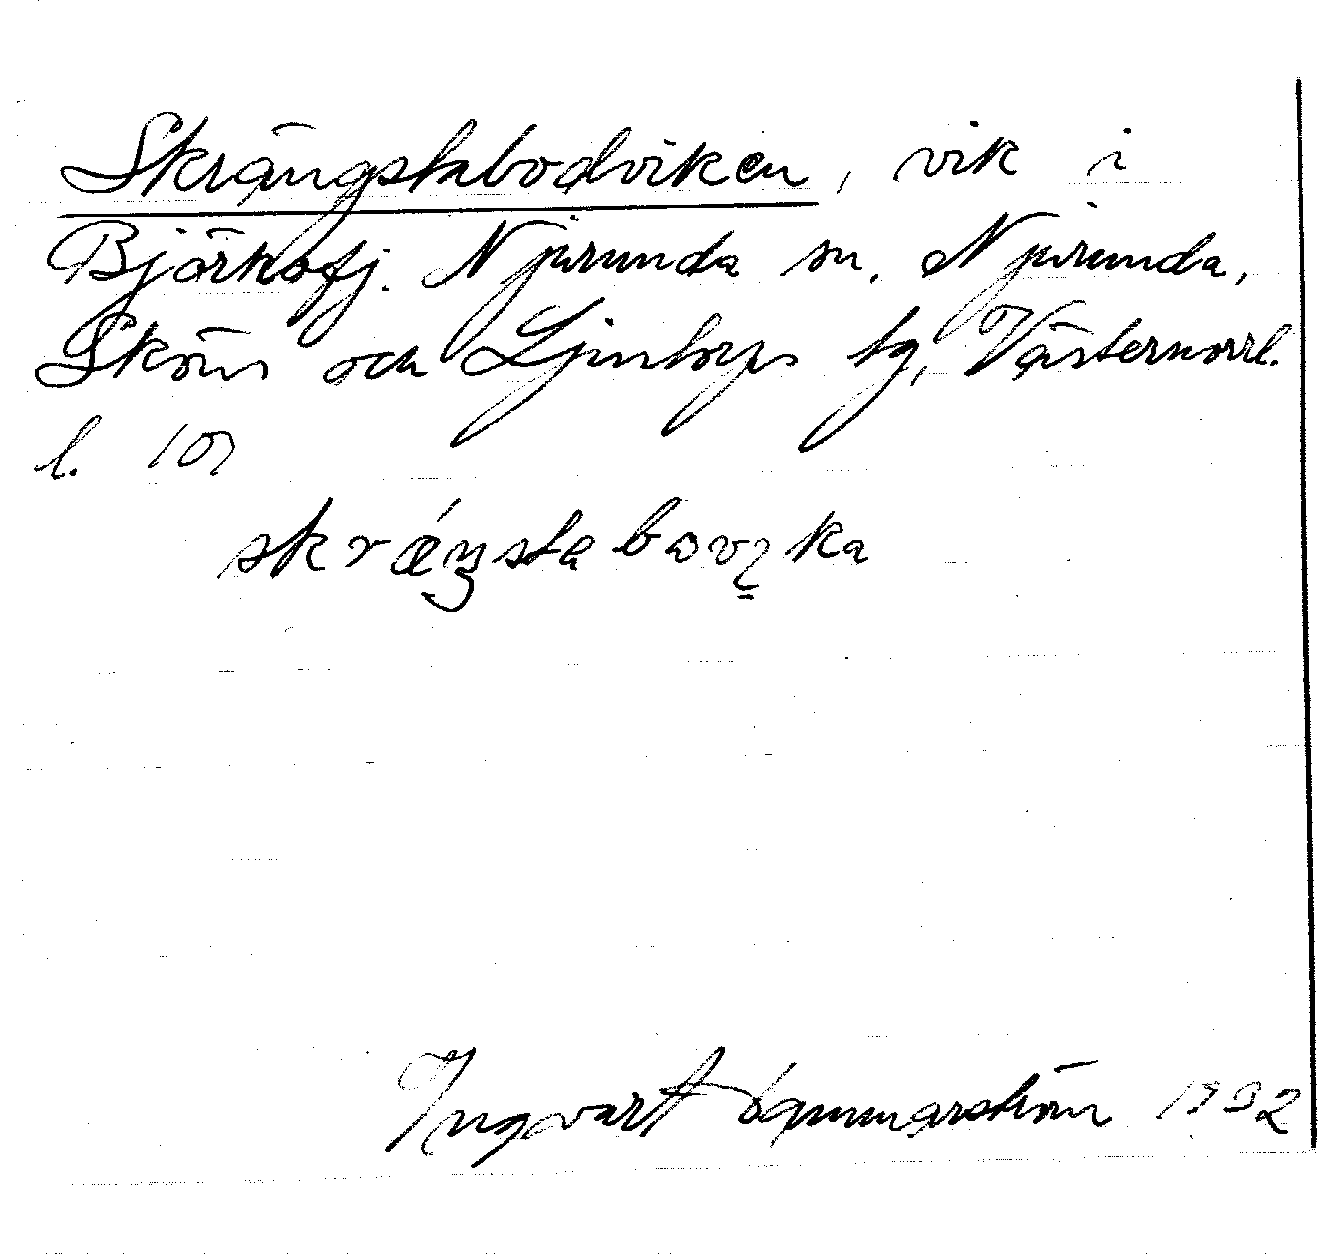 Skrängstabodviken, vik i
Björkofj. Njurunda sn, Njurunda,
Sköns och Ljustorps tg, Västernorrl.
l. 107
skrǽŋstabωvı̣ka
Ingvart Hammarström 1932